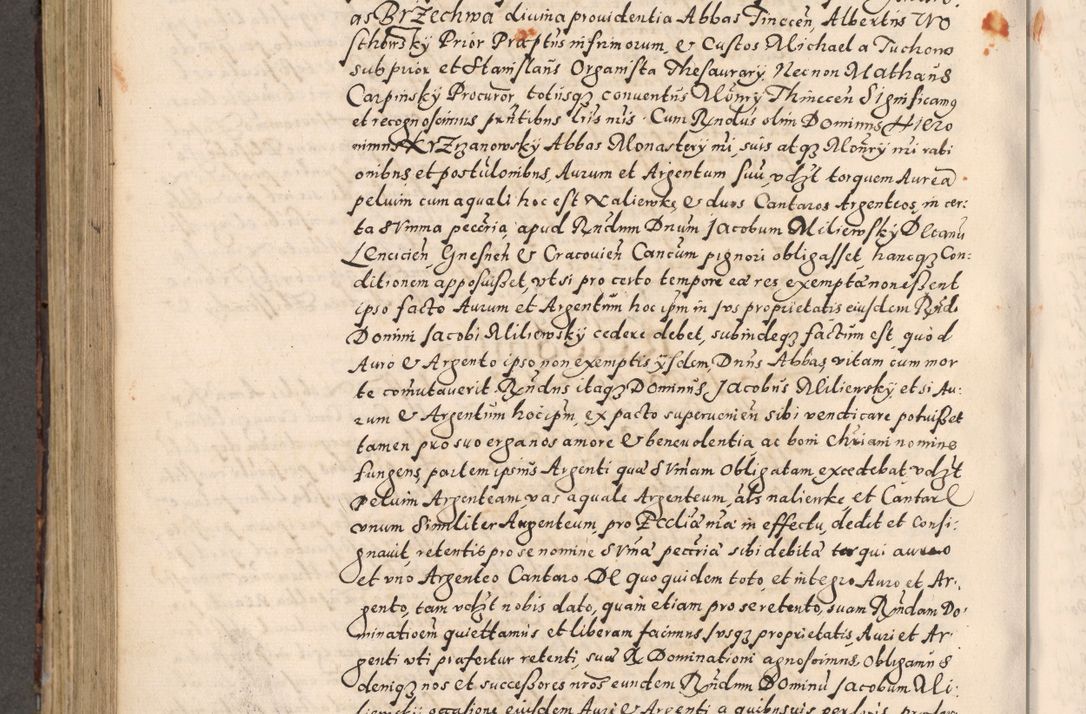 as Brzechwa divina providentia Abbas Tinecen̄ Albertus Wo
sthowsky Prior Præptus infirmorum, & Custos Michael a Tuchono
subprior et Stanislaūs Organista Thesaurary Necnon Mathæūs
Carpinsky Procurōr totusqз conventus Mōnry Thinecen̄ Significamꝯ
et recognoscimus pn̄tibus lr̄is nr̄is. Cum Rn̄dus olim Dominus Hiero
nimus Krzizanowsky Abbas Monastery nr̄i, suis atqз Mōnry nr̄i rati
onibus et postulōnibus, Aurum et Argentum suū, vdзt torquem Aureā
peluim cum aquali hoc est Naliewkę, & duos Cantaros Argenteos, in cer:
ta sum̄ma pecūria apud Rn̄dum Dnum Iacobum Miliewsky Decanū
Lencicien̄, Gnesnen̄ & Cracovien̄ Cancum pignori obligasset, hancqз Con:
ditionem apposuisset, vt si pro certo tempore eæ res exemptæ non essent
ipso facto Aurum et Argentum hoc ipm̄ in Ius proprietatis eiusdem Rn̄di
Domini Iacobi Miliewsky cedere debet, subindeqз factum est, quod
Auro & Argento ipso non exemptis ysdem, Dnus Abbas vitam cum mor
te com̄utauerit. Rn̄dus itaqз Dominus Iacobus Miliewsky etsi Au:
rum & Argentum hoc ipm̄, ex pacto superuenien̄ sibi vendicare potuisset
tamen pro suo erga nos amore & beneuolentia ac boni Chr̄iani nomine
fungens, partem ipsius Argenti quæ sum̄am obligatam excedebat, vdзt
Peluim Argenteam, vas aquale Argenteum, als nalienkę et Cantar
vnum Similiter Argenteum, pro Ecclīa nr̄a in effectu, dedit et consi:
gnauit, retentis pro se nomine sum̄æ pecūriæ sibi debitæ torqui aureo
et vno Argenteo Cantaro. De quo quidem toto, et integro Auro et Ar:
gento, tam vdзt nobis dato, quam etiam pro se retento, suam Rn̄dam Do:
minatioem̄ quiettamus et liberam facimus, Iusqз proprietatis Auri et Ar:
genti vti præfertur retenti, suæ R Dominationi agnoscimus, Obligamus
deniqз nos et successores nros̄ eundem Rn̄dum Dominū Iacobum Mili:
liewsky occasione eiusdem Auri & Argenti a quibusuis personis